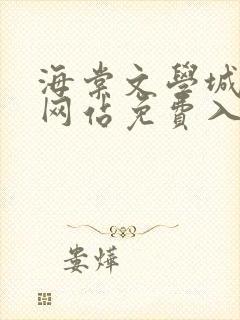 海棠文學城
网站免費入
娄烨